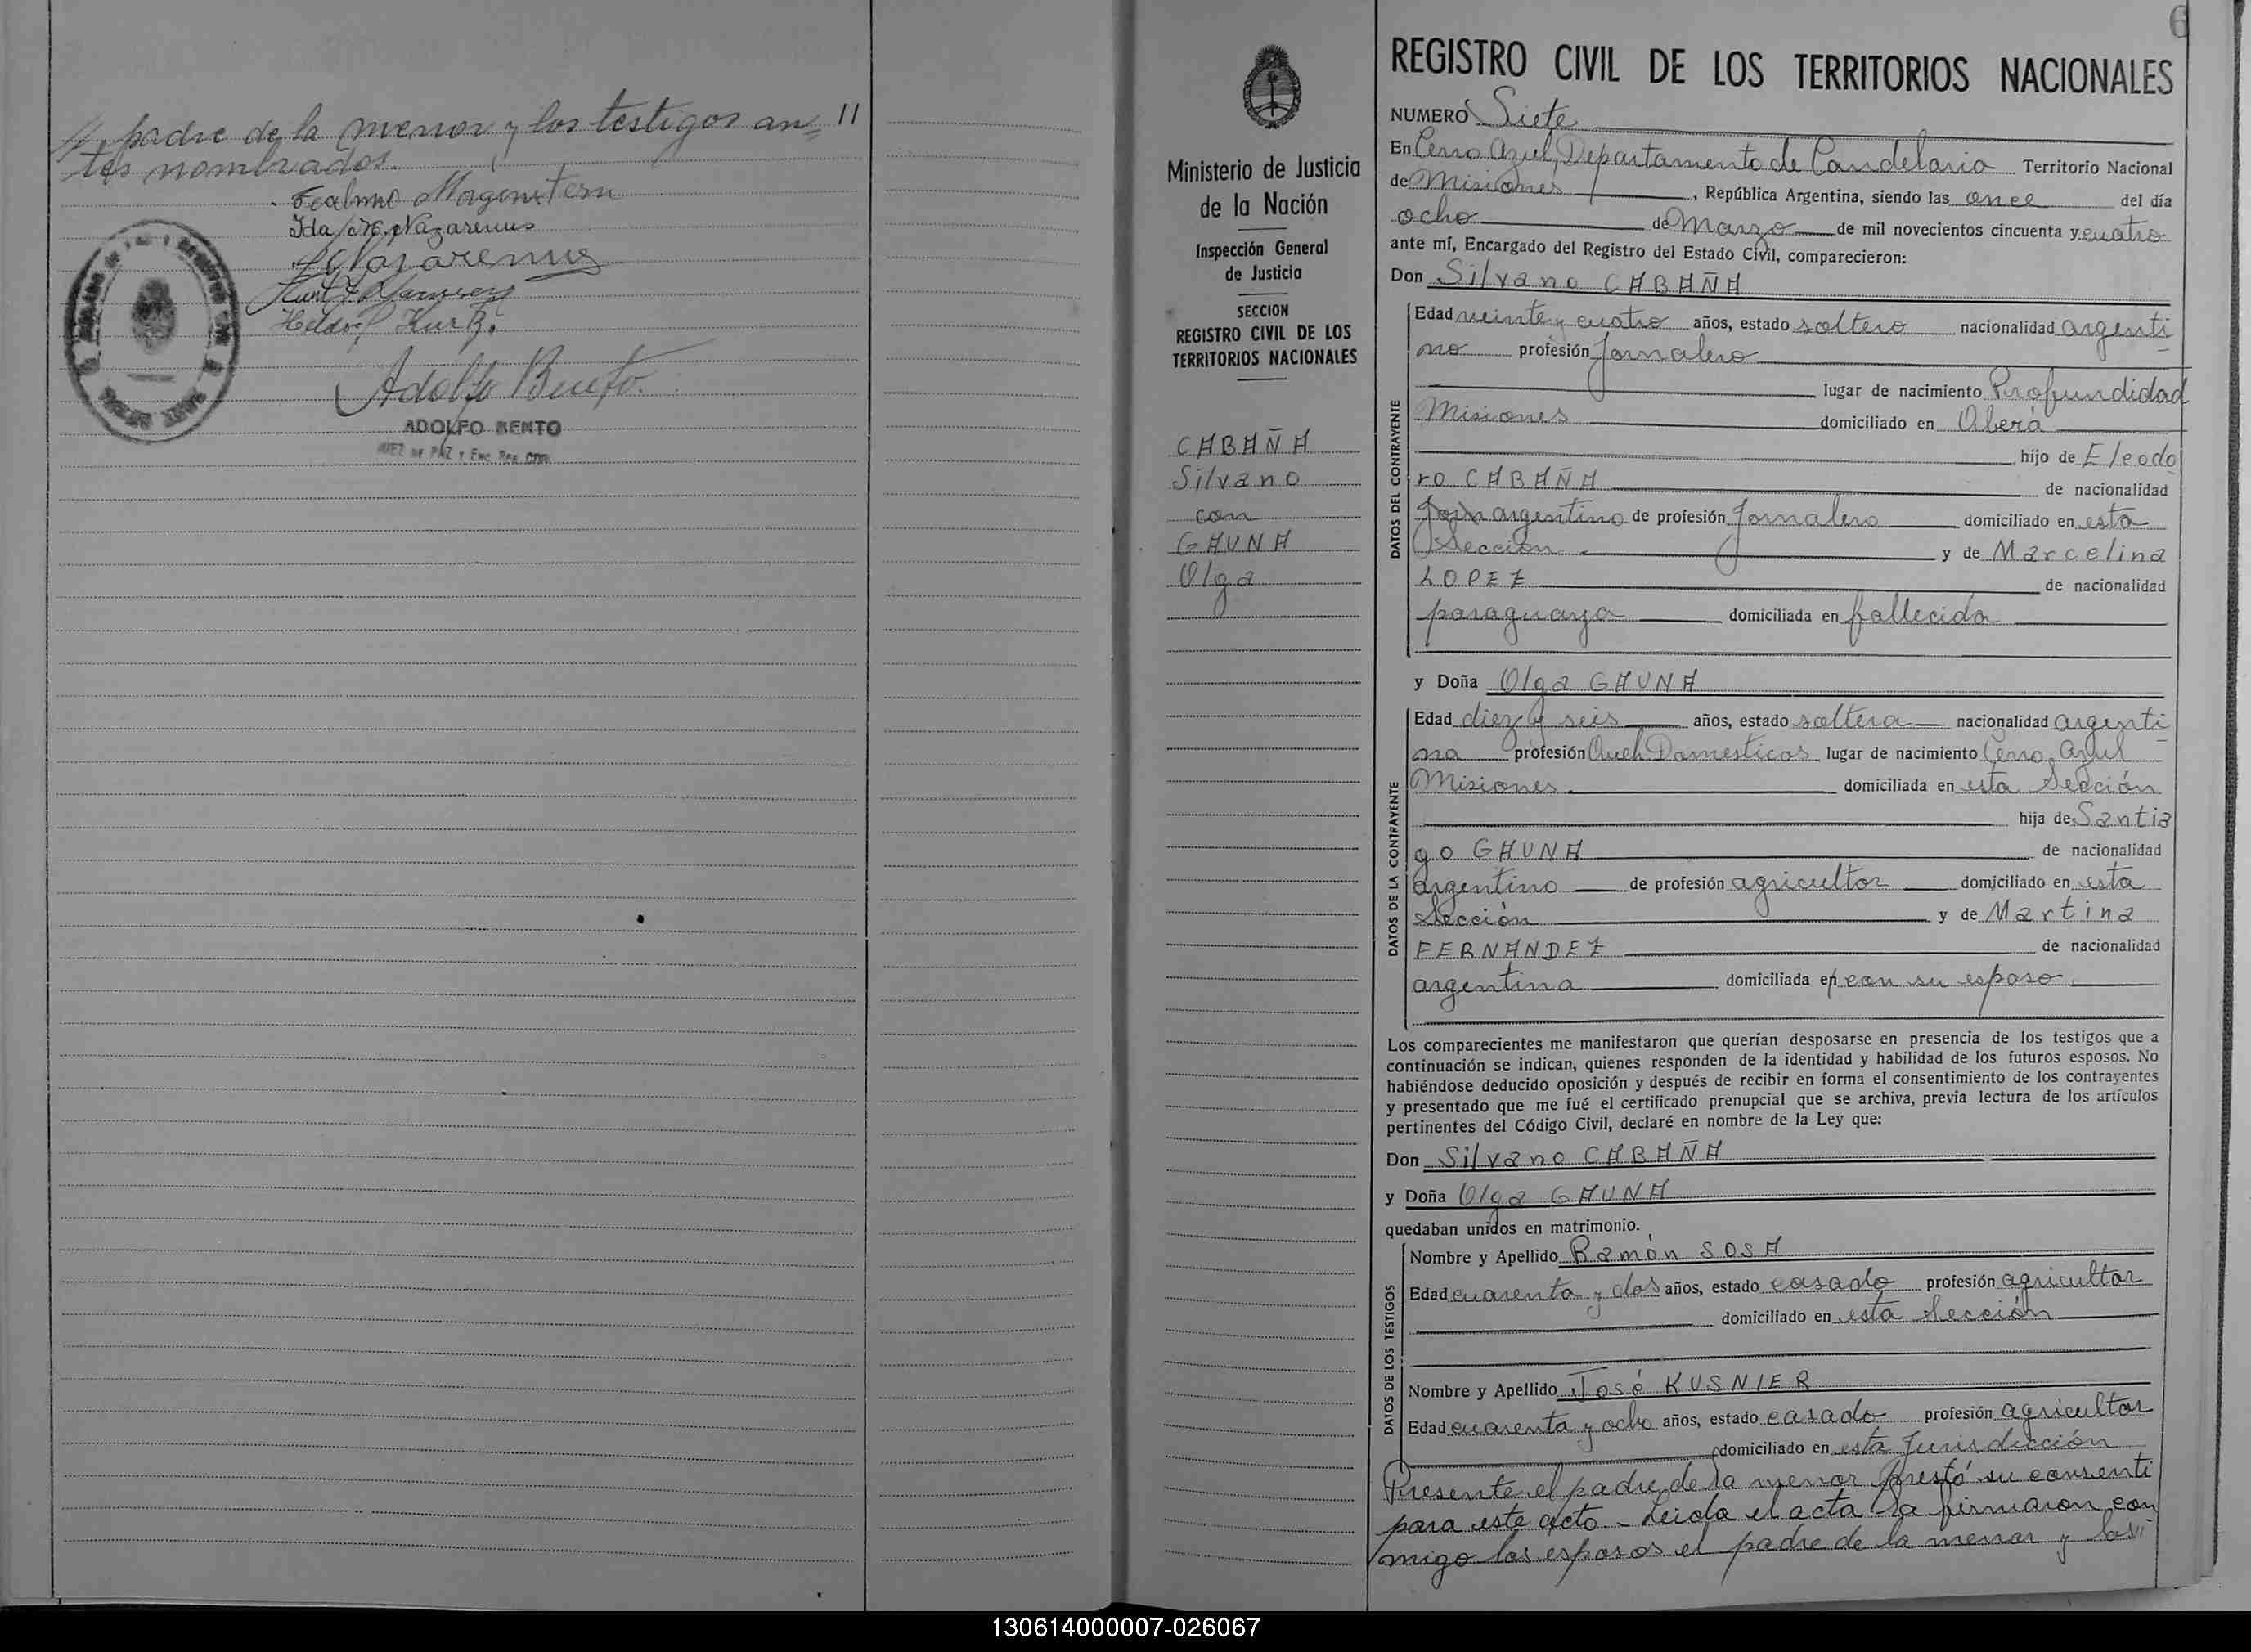 padre de la menor y los testigos an= "
tes nombrados.
Ida Nazarenus
Nazarenus
Adolfo Bento
ADOLFO BENTO
JUEZ DE PAZ Y Enc. Reg. Civil
6
REGISTRO CIVIL DE LOS TERRITORIOS NACIONALES
Ministerio de Justicia
de la Nación
Inspección General
de Justicia
SECCION
REGISTRO CIVIL DE LOS
TERRITORIOS NACIONALES
CABAÑA
Silvano
con
GAUNA
Olga
NUMERO Siete
En Cerro Azul, Departamento de Candelaria Territorio Nacional
de Misiones, República Argentina, siendo las once del día
ocho de Marzo de mil novecientos cincuenta y cuatro
ante mí, Encargado del Registro del Estado Civil, comparecieron:
Don Silvano CABAÑA
DATOS DEL CONTRAYENTE
Edad veinte y cuatro años, estado soltero nacionalidad argenti
no profesión Jornalero
lugar de nacimiento Profundidad
Misiones domiciliado en Oberá
hijo de Eleodo
ro CABAÑA de nacionalidad
argentino de profesión Jornalero domiciliado en esta
Sección y de Marcelina
LOPEZ de nacionalidad
paraguaya domiciliada en fallecida
y Doña Olga GAUNA
DATOS DE LA CONTRAYENTE
Edad diez y seis años, estado soltera nacionalidad argenti
na profesión Queh. Domesticos lugar de nacimiento Cerro Azul
Misiones domiciliada en esta Sección
hija de Santia
go GAUNA de nacionalidad
argentino de profesión agricultor domiciliado en esta
Sección y de Martina
FERNANDEZ de nacionalidad
argentina domiciliada en con su esposo
Los comparecientes me manifestaron que querían desposarse en presencia de los testigos que a
continuación se indican, quienes responden de la identidad y habilidad de los futuros esposos. No
habiéndose deducido oposición y después de recibir en forma el consentimiento de los contrayentes
y presentado que me fué el certificado prenupcial que se archiva, previa lectura de los artículos
pertinentes del Código Civil, declaré en nombre de la Ley que:
Don Silvano CABAÑA
y Doña Olga GAUNA
quedaban unidos en matrimonio.
DATOS DE LOS TESTIGOS
Nombre y Apellido Ramón SOSA
Edad cuarenta y dos años, estado casado profesión agricultor
domiciliado en esta Sección
Nombre y Apellido José KUSNIER
Edad cuarenta y ocho años, estado casado profesión agricultor
domiciliado en esta Jurisdicción
Presente el padre de la menor prestó su consenti
para este acto - Leida el acta la firmaron con
migo los esposos el padre de la menor y los
130614000007-026067